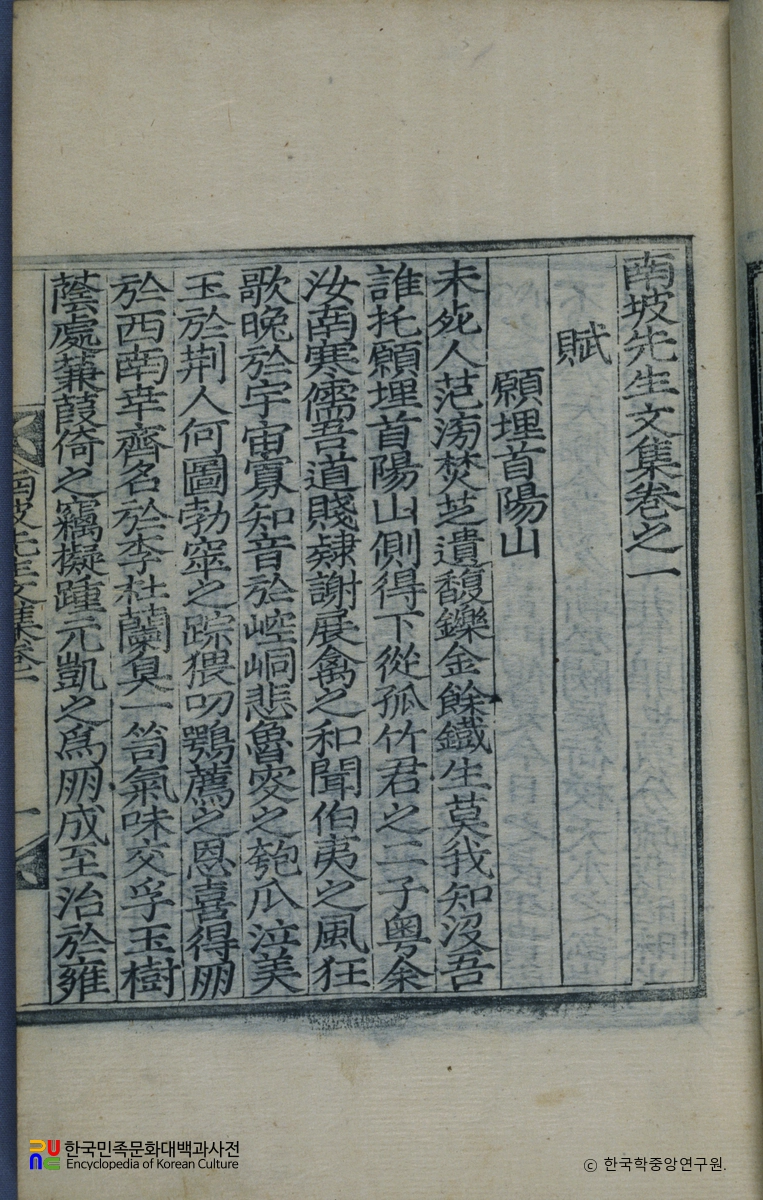 南坡先生文集卷之一
賦
願埋首陽山
未死人范滂焚芝遺馥鑠金餘鐵生莫我知沒吾
誰托願埋首陽山側得下從孤竹君之二子粤余
汝南寒儒吾道賤隷謝展禽之和聞伯夷之風狂
歌晚於宇宙寡知音於崆峒悲魯叟之匏瓜泣美
玉於荆人何圖勃窣之踪猥叨鶚薦之恩喜得朋
於西南幸齊名於李杜蘭臭一笥氣味交孚玉樹
蔭處蒹葭倚之竊擬踵元凱之爲朋成至治於雍
南坡先生文集卷一
一
한국민족문화대백과사전
Encyclopedia of Korean Culture
ⓒ 한국학중앙연구원.